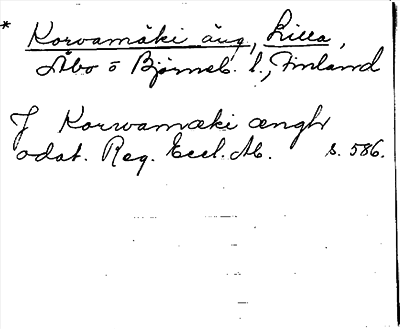 * Korvamäki äng, Lilla,
Åbo o Björneb. l., Finland
J Korwamæki ænghr
odat. Reg. Eccl. Ab. s. 586.